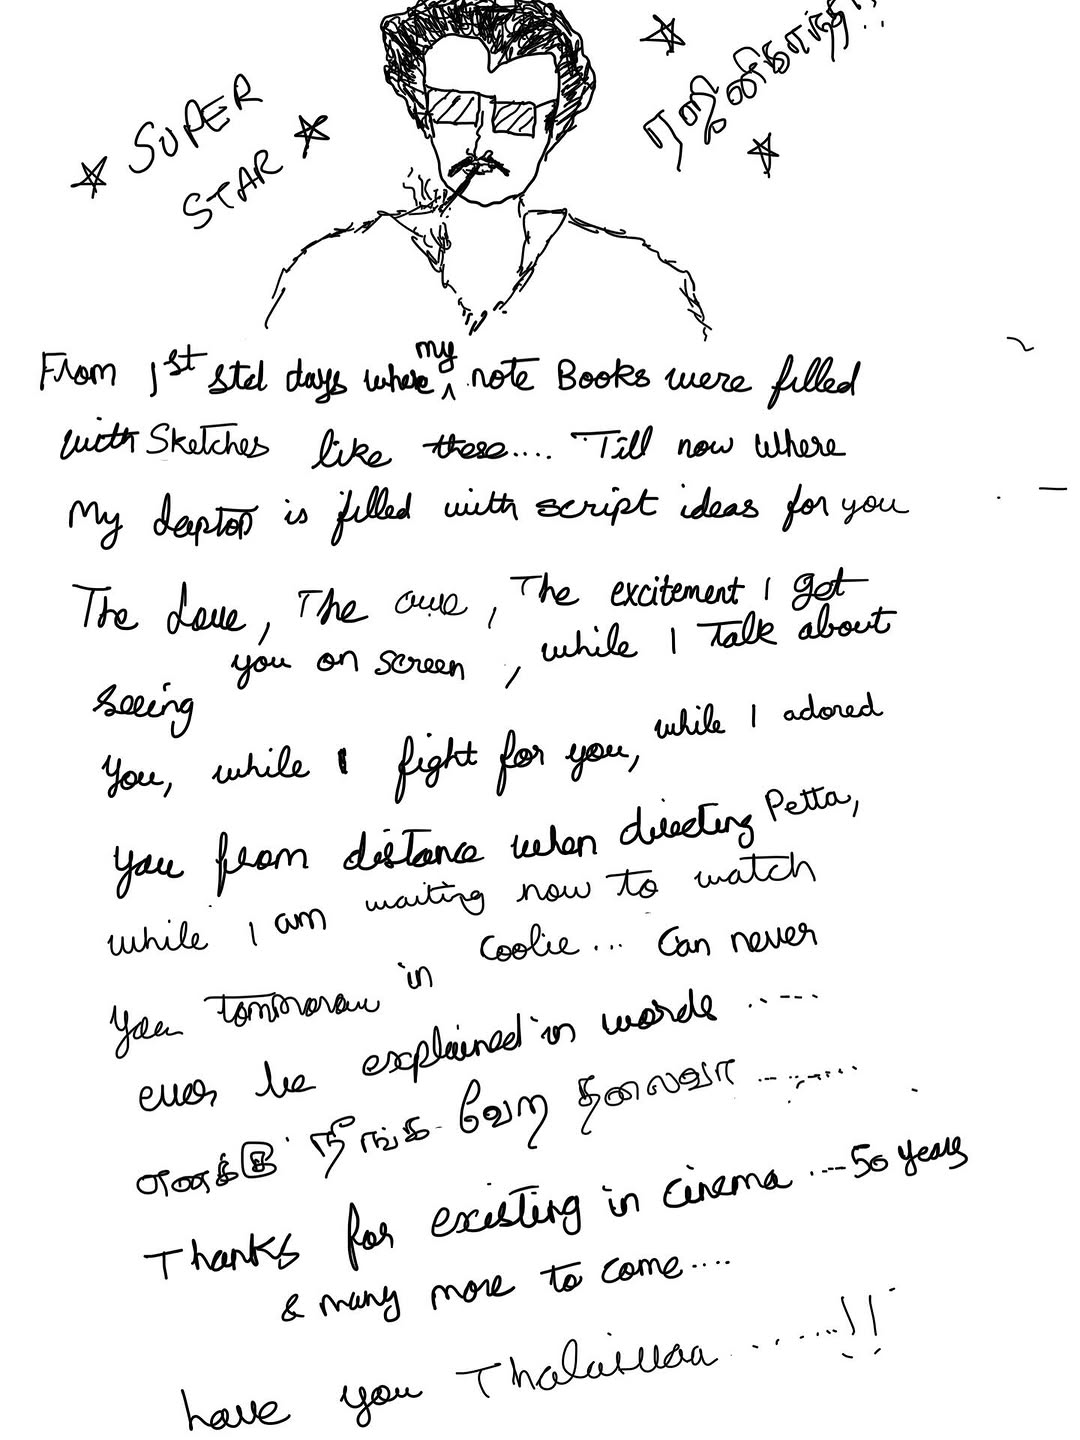 SUPER
STAR
ரஜினிகாந்த்!!
From 1st std days where my note Books were filled
with Sketches like these.... Till now where
My Laptop is filled with script ideas for you
The Love, The awe, The excitement I get
seeing you on screen, while I Talk about
You, while I fight for you, while I adored
you from distance when directing Petta,
while I am waiting now to watch
you tommorow in Coolie... Can never
ever be explained in words .....
எனக்கு நீங்க வேற தலைவா ........
Thanks for existing in cinema ....50 years
& many more to come....
Love you Thalaivaa ........!!